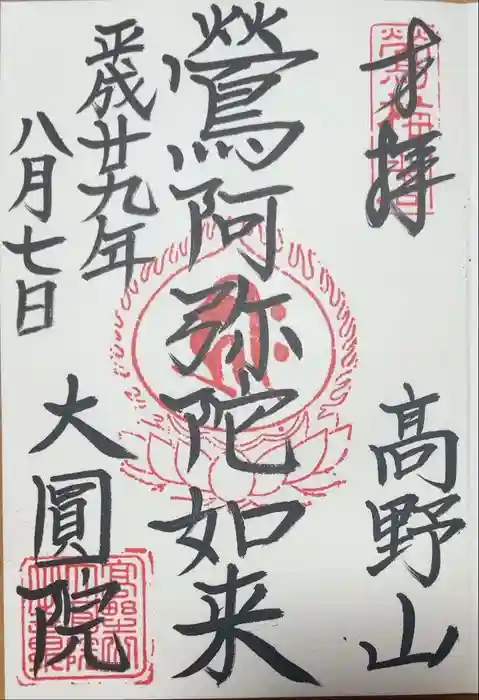 奉拝
高野山
鶯阿弥陀如来
平成廿九年
八月七日
大圓院